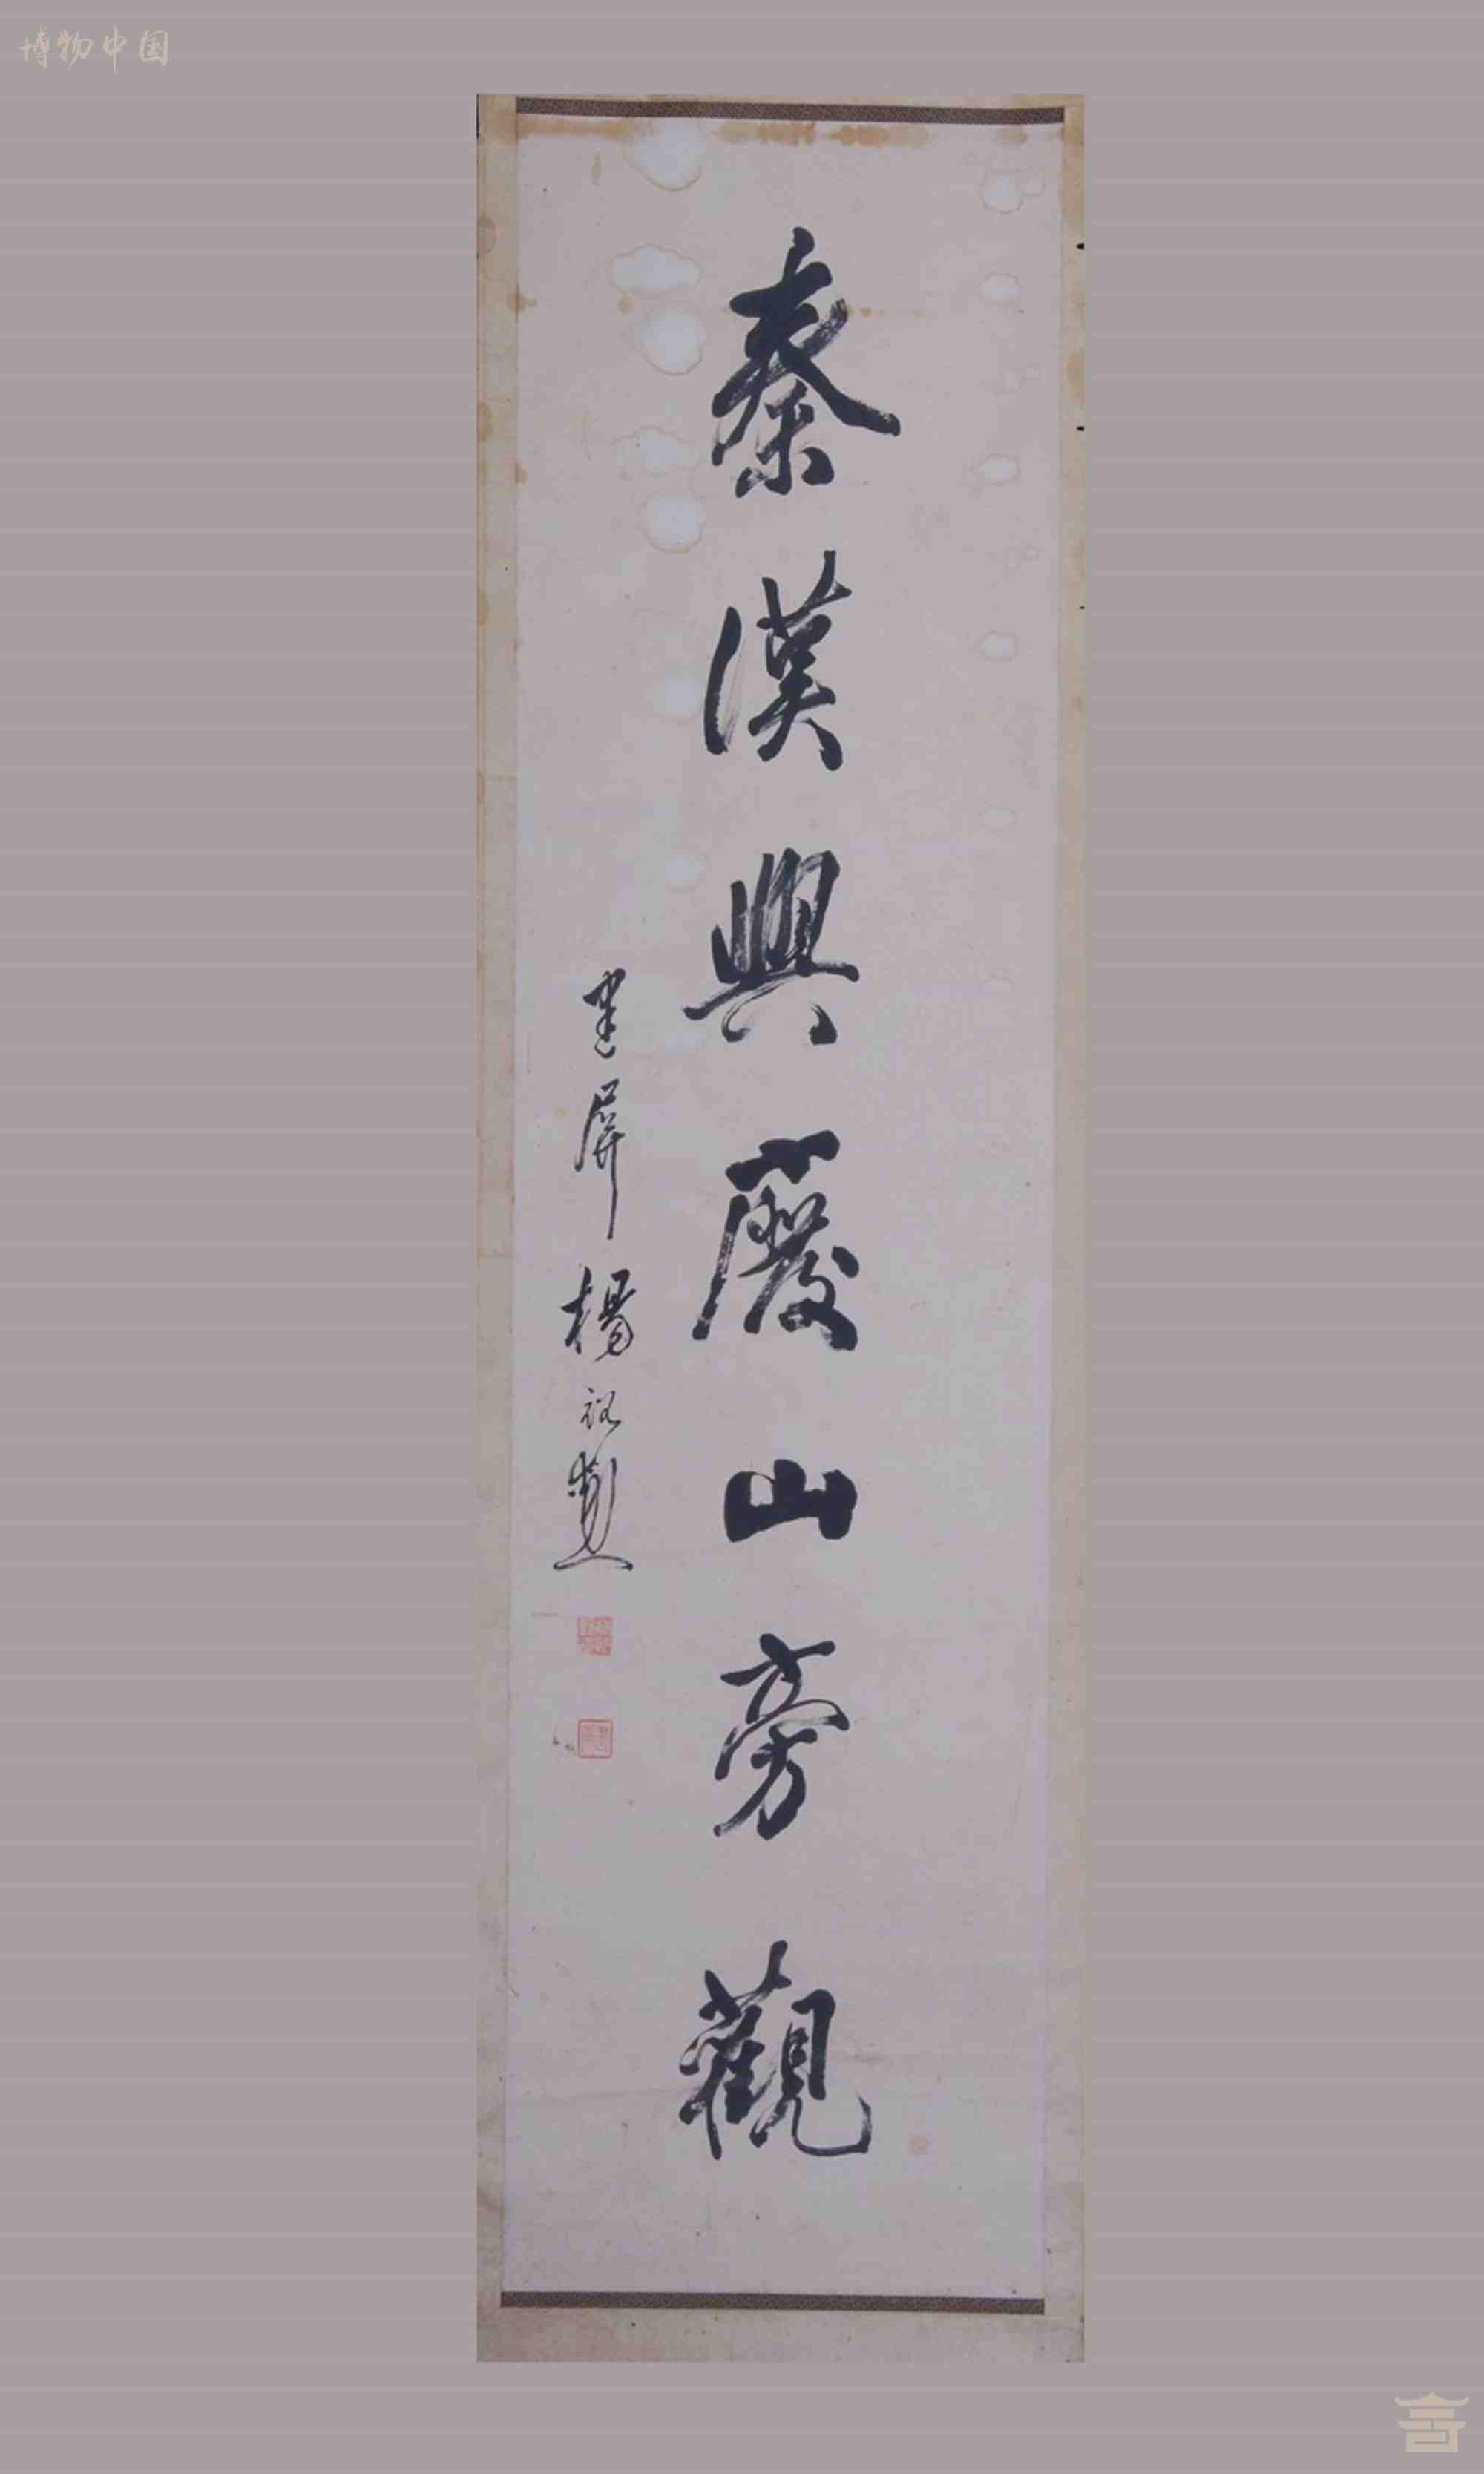 博物中国
秦漢興廢山旁觀
建屏楊